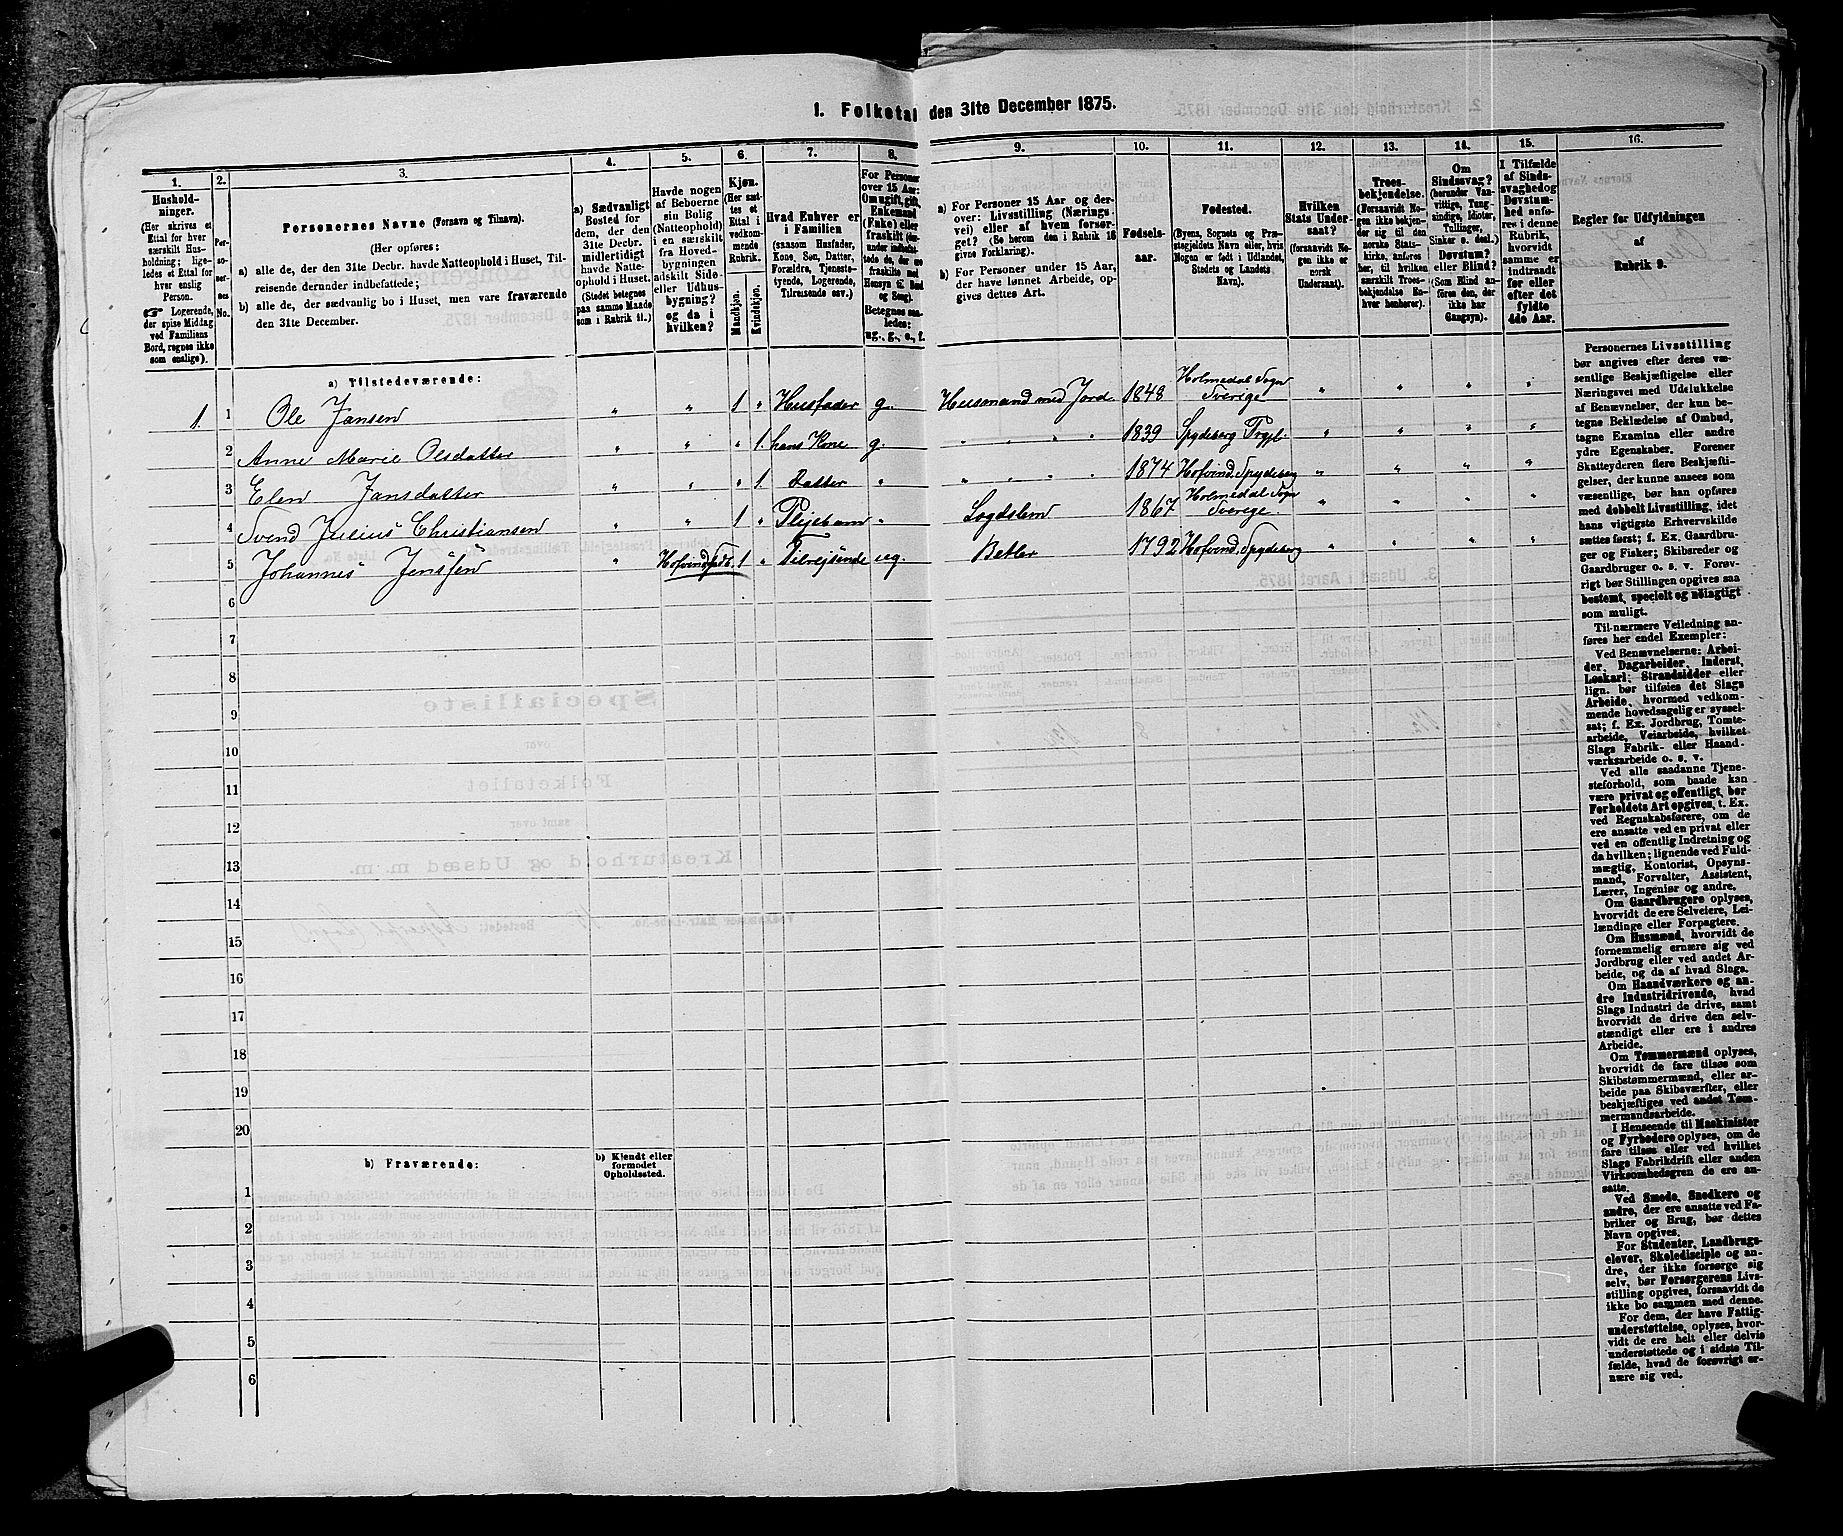 1. Folketal den 31te December 1875.
1.
Hushold-
ninger.
(Her skrives et
Ettal for hver
særskilt Hus-
holdning; lige-
ledes et Ettal for
hver enslig
Person.
Logerende,
der spise Middag
ved Familiens
Bord, regnes ikke
som enslige).
2.
Per-
so-
ner-
nes
No.
3.
Personernes Navne (Fornavn og Tilnavn).
(Her opføres:
a) alle de, der den 31te Decbr. havde Natteophold i Huset, Til-
reisende derunder indbefattede;
b) alle de, der sædvanlig bo i Huset, men vare fraværende
den 31te December.
4.
a) Sædvanligt
Bosted for
dem, der den
31te Decbr.
midlertidigt
havde Natte-
ophold i Huset.
(Stedet betegnes
paa samme Maade
som i Rubrik 11.)
5.
Havde nogen
af Beboerne
sin Bolig
(Natteophold)
i en særskilt
fra Hoved-
bygningen
adskilt Side-
eller Udhus-
bygning?
og da i
hvilken?
6.
Kjøn.
(Her sæt-
tes et
Ettal i
vedkom-
mende
Rubrik.
Mandkjøn.
Kvindekjøn.
7.
Hvad Enhver er
i Familien
(saasom Husfader,
Kone, Søn, Datter,
Forældre, Tjeneste-
tyende, Logerende,
Tilreisende osv.)
8.
For Personer
over 15 Aar:
Om ugift, gift,
Enkemand
(Enke) eller
fraskilt
Betegnes saa-
ledes:
ug., g., e., f.
9.
a) For Personer 15 Aar og der-
over: Livsstilling (Nærings-
vei) eller af hvem forsør-
get? (Se herom den i Rubrik 16
givne Forklaring).
b) For Personer under 15 Aar,
der have lønnet Arbeide, op-
gives dettes Art.
10.
Fødsels-
aar.
11.
Fødested.
(Byens, Sognets og Præ-
stegjeldets Navn eller, hvis
Nogen er født i Udlandet,
Stedets og Landets
Navn).
12.
Hvilken
Stats Under-
saat?
(forsaavidt No-
gen ikke er
norsk
Undersaat).
13.
Troes-
bekjendelse.
(Forsaavidt No-
gen ikke bekjen-
der sig til den
norske Stats-
kirke, anføres
her, til hvilken
særskilt Troes-
bekjendelse En-
hver henhører).
14.
Om
Sindssvag?
(herunder Van-
vittige, Tung-
sindige, Idioter,
Tullinger,
Sinker o. desl.)
Døvstum?
eller Blind?
(Som Blind an-
føres den, der
ikke har
Gangsyn).
15.
I Tilfælde
af Sinds-
svaghed og
Døvstum-
hed anfø-
res i denne
Rubrik,
hvorvidt
samme er
indtraadt
før eller
efter det
fyldte
4de Aar.
16.
Regler for Udfyldningen
af
Rubrik 9.
a) Tilstedeværende:
1 1 Ole Jansen " " 1 " Husfader g. Husmand med Jord 1848 Holmedal Sogn Sverige " " " "
2 Anne Marie Olsdatter " " " 1. hans Kone g. " " " " 1839 Spydeberg Prgjl. " " " "
3 Elen Jansdatter " " " 1. Datter " " " " " 1874 Hofvind, Spydeberg " " " "
4 Svend Julius Christiansen " " 1 " Plejebarn " Logdslem 1867 Holmedal Sogn Sverige. " " " "
5 Johannes Jenssen " 1 " Tilrejsende ug. Betler 1792 Hofvind, Spydeberg " " " "
6
7
8
9
10
11
12
13
14
15
16
17
18
19
20
b) Fraværende:
b) Kjendt eller
formodet
Opholdssted.
1
2
3
4
5
6
Personernes Livsstilling
bør angives efter deres væ-
sentlige Beskjæftigelse eller
Næringsvei med Udelukkelse
af Benævnelser, der kun be-
tegne Beklædelse af Ombud,
tagne Examina eller andre
ydre Egenskaber. Forener
Skatteyderen flere Beskjæfti-
gelser, der kunne ansees som
væsentlige, bør han opføres
med dobbelt Livsstilling, idet
hans vigtigste Erhvervskilde
sættes først; f. Ex. Gaardbru-
ger og Fisker; Skibsreder og
Gaardbruger o. s. v. Forøv-
rigt bør Stillingen opgives saa
bestemt, specielt og nöiagtigt
som muligt.
Til nærmere Veiledning an-
føres her endel Exempler:
Ved Benævnelserne: Arbei-
der, Dagarbeider, Inderst,
Løskarl, Strandsidder eller
lign. bør tilføies det Slags
Arbeide, hvormed vedkom-
mende hovedsagelig er syssel-
sat; f. Ex. Jordbrug, Tomte-
arbeide, Veiarbeide, hvilket
Slags Fabrik- eller Haand-
værksarbeide o. s. v.
Ved alle saadanne Tjene-
steforhold, som baade kan
være privat og offentligt, bør
Forholdets Art opgives, t. Ex.
ved Regnskabsførere, om de
ere ansatte ved en privat eller
ved en offentlig Indretning og
da hvilken; lignende ved Fuld-
mægtig, Kontorist, Opsyns-
mand, Forvalter, Assistent,
Lærer, Ingeniør og andre.
Om Gaardbrugere oplyses,
hvorvidt de ere Selveiere, Lei-
lændinge eller Forpagtere.
Om Husmænd, hvorvidt de
fornemmelig ernære sig ved
Jordbrug eller ved andet Ar-
beide, og da af hvad Slags.
Om Haandværkere og an-
dre Industridrivende, hvad
Slags Industri de drive, samt
hvorvidt de drive den selv-
stændigt eller ere i andres
Arbeide.
Om Tømmermænd oplyses,
hvorvidt de fare tilsøs som
Skibstømmermænd, eller ar-
beide paa Skibsværfter, eller
beskjæftiges ved andet Tøm-
mermandsarbeide.
I Henseende til Maskinister
og Fyrbødere oplyses, om de
fare tilsøs eller ved hvilket
Slags Fabrikdrift eller anden
Virksomhedsgren de ere an-
satte.
Ved Smede, Snedkere og
andre, der ere ansatte ved Fa-
briker og Brug, bør dettes
Navn opgives.
For Studenter, Landbrugs-
elever, Skoledisciple og an-
dre, der ikke forsørge sig
selv, bør Forsørgerens Livs-
stilling opgives, forsaavidt de
ikke bo sammen med denne.
For dem, der have Fattig-
understøttelse, oplyses, hvor-
vidt de ere helt eller delvis
understøttede og i sidste Til-
fælde, hvad de forøvrigt er-
nære sig ved.